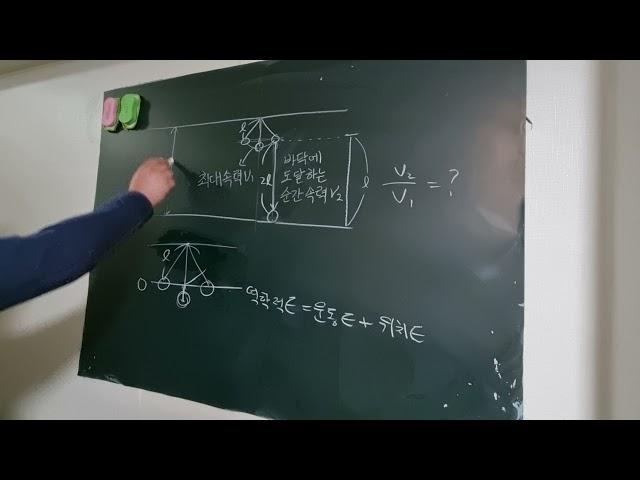 l
최대속력V₁
2l
바닥에
도달하는
순간속력V₂
l
V₂
V₁
= ?
l
0
역학적E = 운동E + 위치E